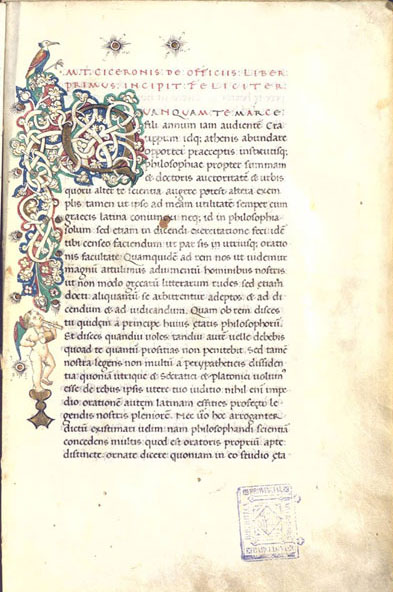 M. T. CICERONIS DE OFFICIIS LIBER
PRIMUS INCIPIT FELICITER
QUANQUAM TE MARCE
fili annum iam audientē Cra
tippum idq; athenis abundare
oportet praeceptis institutisq;
philosophiae propter summam
& doctoris auctoritatē & urbis
quorū alter te scientia augere potest altera exem
plis tamen ut ipse ad meam utilitatē semper cum
graecis latina coniunxi neq; id in philosophia
solum sed etiam in dicendi exercitatione feci idē
tibi censeo faciendum ut par sis in utriusq; oratio
nis facultate Quamquidē ad rem nos ut uidemur
magnū attulimus adiumentū hominibus nostris
ut non modo grecarū litterarum rudes sed etiam
docti aliquantū se arbitrentur adeptos & ad di
cendum & ad iudicandum. Quam ob rem disces
tu quidem a principe huius etatis philosophorū
Et disces quandiu uoles tandiu autē uelle debebis
quoad te quanti proficias non penitebit Sed tamē
nostra legens non multū a perypatheticis dissidē
tia quoniā utriq; & Socratici & platonici uolumus
esse de rebus ipsis utere tuo iuditio nihil eni impe
dio orationē autem latinam efficies profecto le
gendis nostris pleniorē. Nec uō hoc arroganter
dictū existimari uelim nam philosophandi scientiā
concedens multis quod est oratoris propriū apte
distincte ornate dicere quoniam in eo studio eta